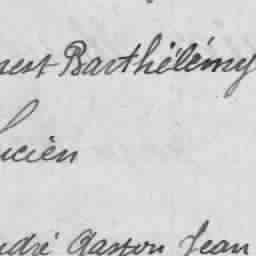 nest Barthélémy
ucien
ndré Gaston Jean